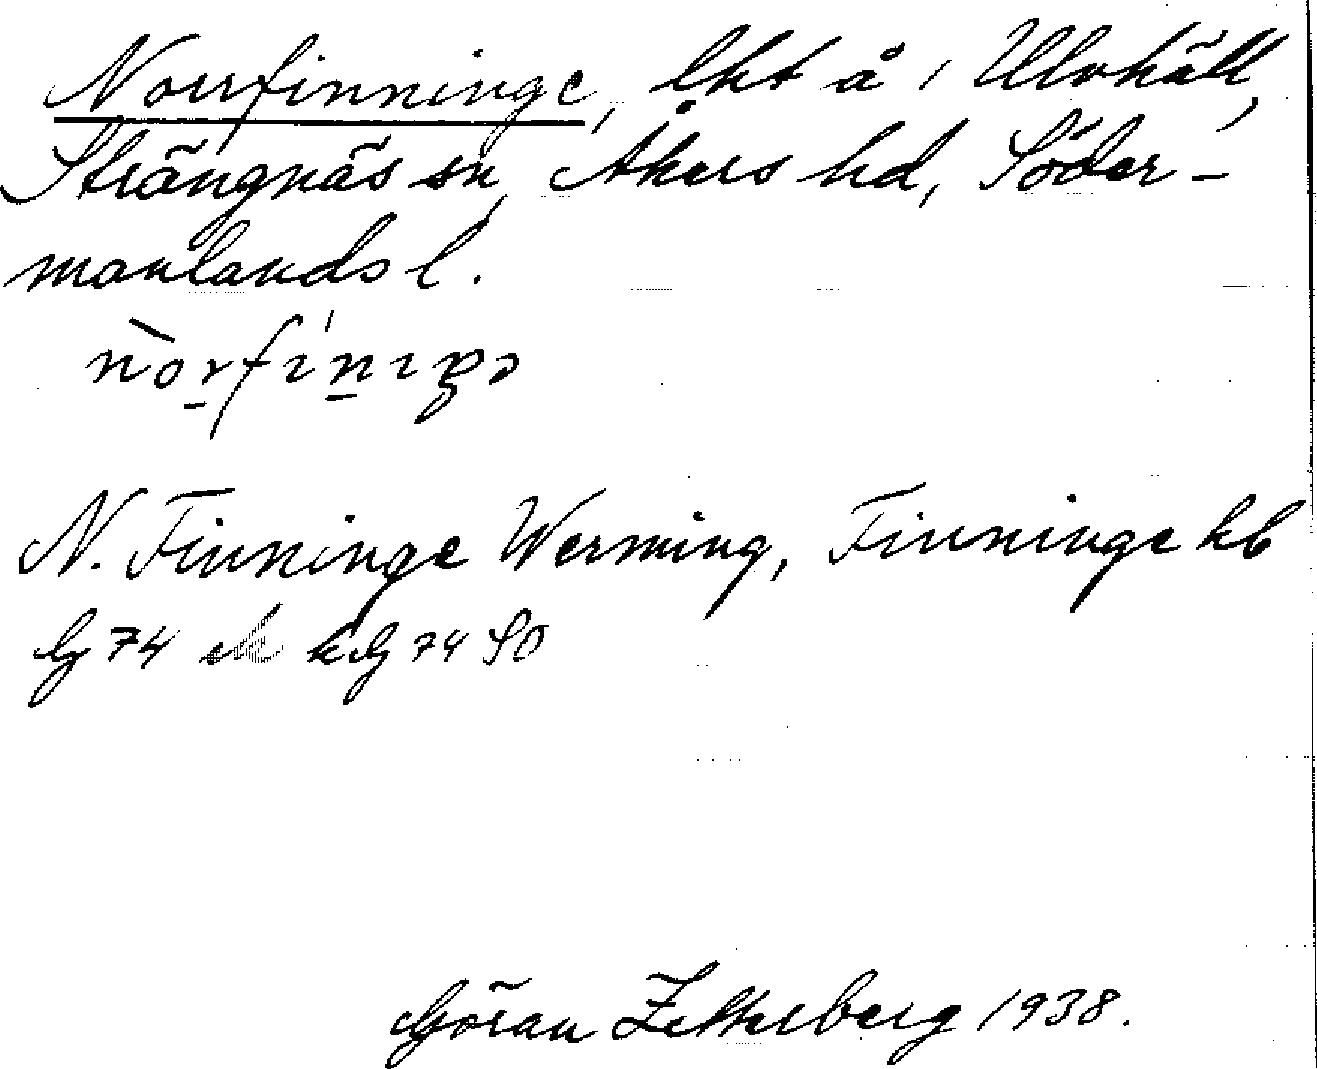 Norrfinninge, lht å 1 Ulvhäll,
Strängnäs sn, Åkers hd, Söder-
manlands l.
N. Finninge Werming, Finninge hb
G 74 kG 74 SO
Göran Zetterberg 1938.